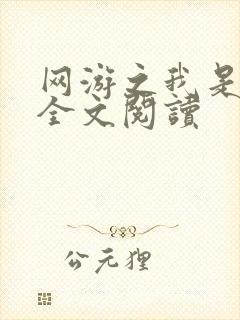 网游之我是
全文閱讀
公元狸